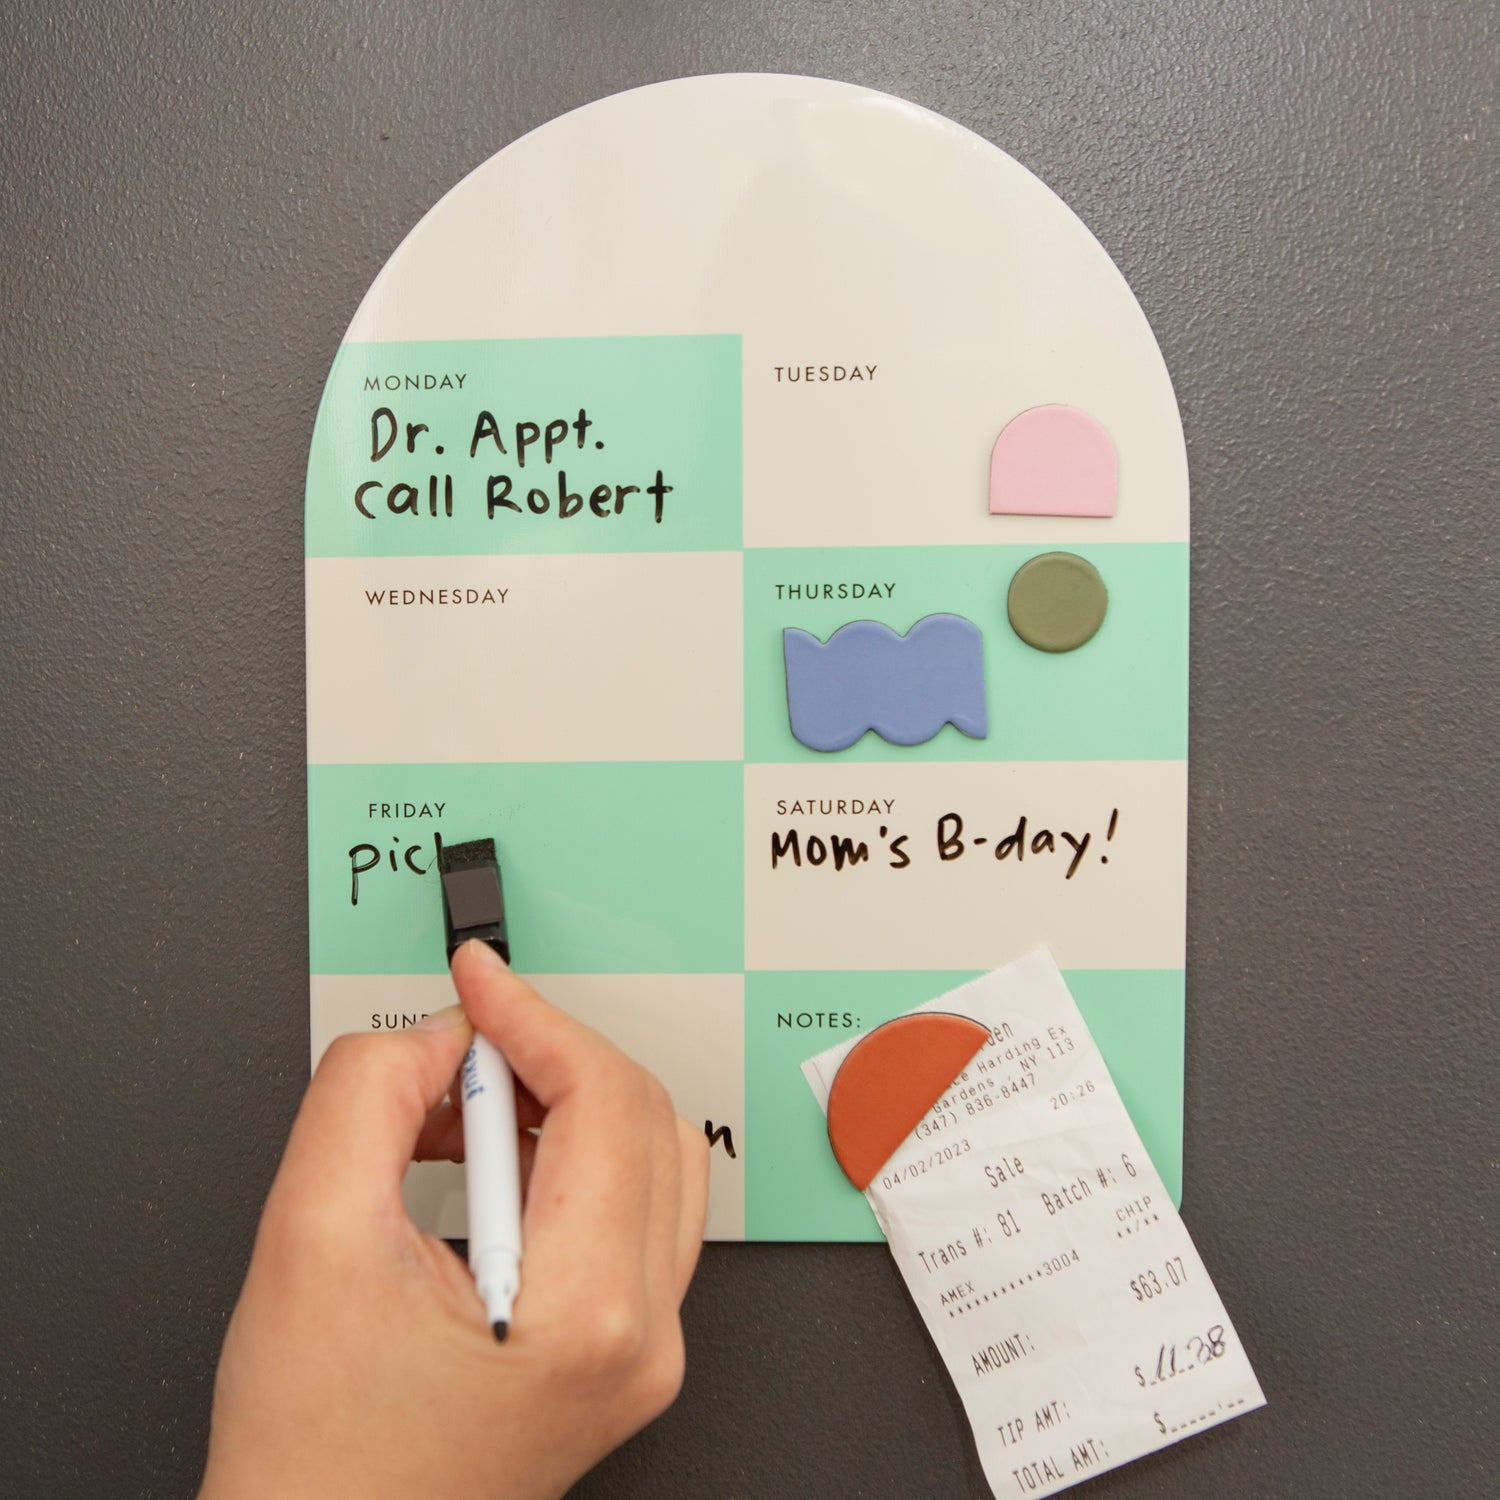 MONDAY
Dr. Appt.
call Robert
TUESDAY
WEDNESDAY
THURSDAY
FRIDAY
SATURDAY
Mom's B-day!
NOTES:
Harding Ex
Gardens, NY 113
(347) 836-8447
04/02/2023 20:26
Sale
Trans #: 81 Batch #: 6
AMEX CHIP
***********3004 **/**
AMOUNT: $63.07
TIP AMT: $ 11.38
TOTAL AMT: $